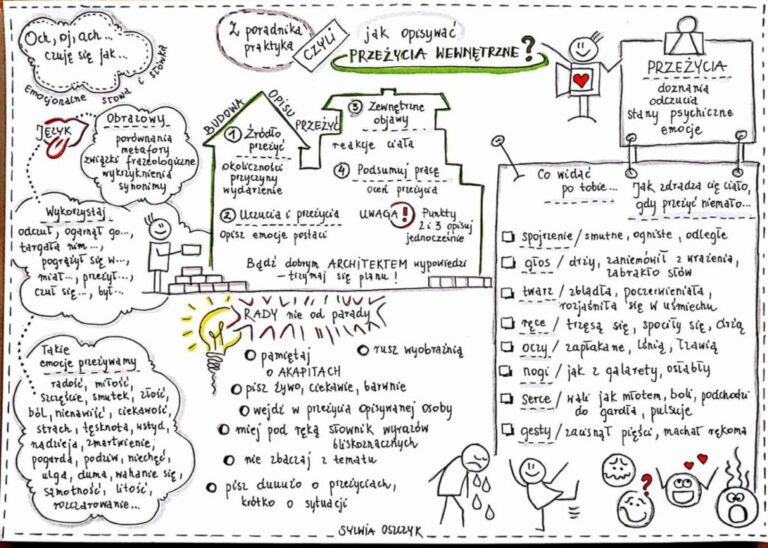 Z poradnika
praktyka
CZYLI
jak opisywać
PRZEŻYCIA WEWNĘTRZNE?
Och, oj, ach...
czuję się jak...
Emocjonalne słowa i słówka
JĘZYK
Obrazowy
porównania
metafory
związki frazeologiczne
wykrzyknienia
synonimy
Wykorzystaj
odczuł, ogarnął go...,
targała nim...,
pogrążył się w...,
miał..., przeżył...,
czuł się..., był...
Takie
emocje przeżywamy
radość, miłość,
szczęście, smutek, złość,
ból, nienawiść, ciekawość,
strach, tęsknota, wstyd,
nadzieja, zmartwienie,
pogarda, podziw, niechęć,
ulga, duma, wahanie się,
samotność, litość,
rozczarowanie...
BUDOWA OPISU PRZEŻYĆ
1 Źródło
przeżyć
okoliczności
przyczyny
wydarzenie
2 Uczucia i przeżycia
opisz emocje postaci
3 Zewnętrzne
objawy
reakcje ciała
4 Podsumuj pracę
oceń przeżycia
UWAGA! Punkty
2 i 3 opisuj
jednocześnie
Bądź dobrym ARCHITEKTEM wypowiedzi
- trzymaj się planu!
RADY nie od parady
pamiętaj
o AKAPITACH
rusz wyobraźnią
pisz żywo, ciekawie, barwnie
wejdź w przeżycia opisywanej osoby
miej pod ręką słownik wyrazów
bliskoznacznych
nie zbaczaj z tematu
pisz duuużo o przeżyciach,
krótko o sytuacji
PRZEŻYCIA
doznania
odczucia
stany psychiczne
emocje
Co widać
po tobie...
Jak zdradza cię ciało,
gdy przeżyć niemało...
spojrzenie / smutne, ogniste, odległe
głos / drży, zaniemówił z wrażenia,
zabrakło słów
twarz / zbladła, poczerwieniała,
rozjaśniła się w uśmiechu
ręce / trzęsą się, spociły się, drżą
oczy / zapłakane, lśnią, łzawią
nogi / jak z galarety, osłabły
serce / wali jak młotem, boli, podchodzi
do gardła, pulsuje
gesty / zacisnął pięści, machał rękoma
?
SYLWIA OSZCZYK